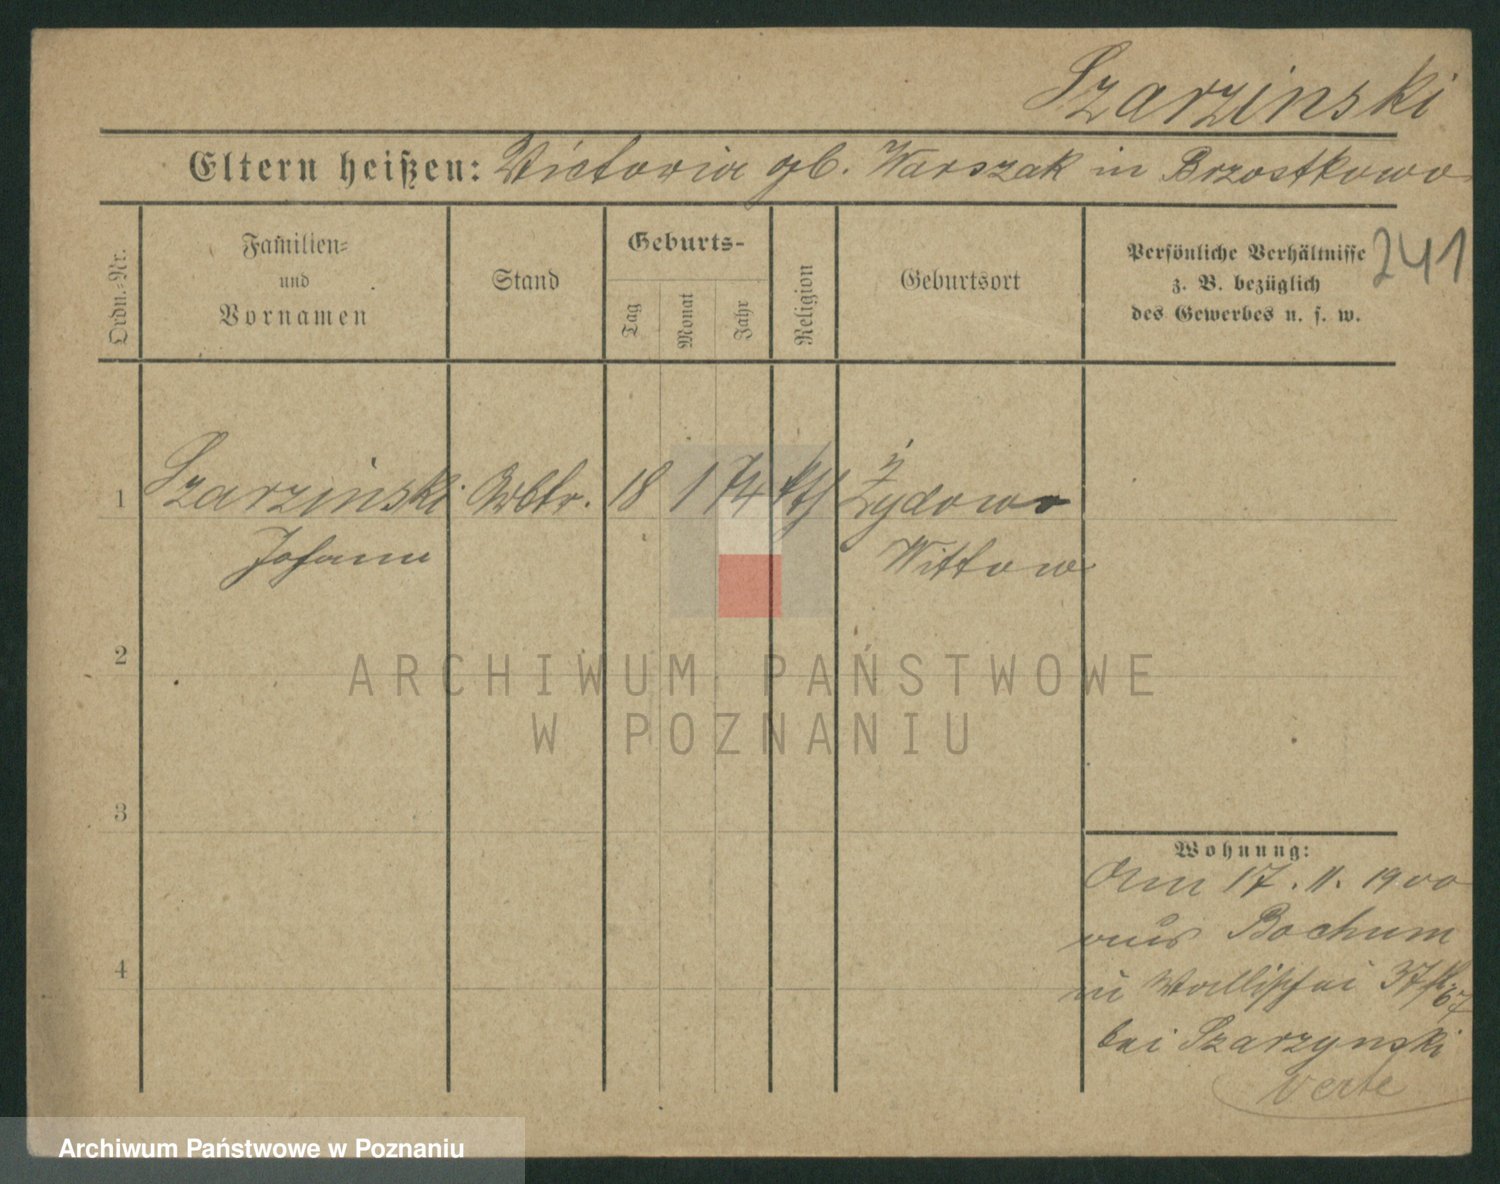 Szarzinski
Eltern heißen: Victoria gb. Warszak in Brzostkowo
Ordn.-Nr.
Familien-
und
Vornamen
Stand
Geburts-
Tag
Monat
Jahr
Religion
Geburtsort
Persönliche Verhältnisse
z. B. bezüglich
des Gewerbes u. s. w.
241
1 Szarzinski Arbtr. 18 1 74 kth Żydowo
Johann Wittkow
2
ARCHIWUM PAŃSTWOWE
W POZNANIU
3
Wohnung:
Am 17. 11. 1900
aus Bochum
in Wallischei 37/
bei Szarzynski
4
Verte
Archiwum Państwowe w Poznaniu